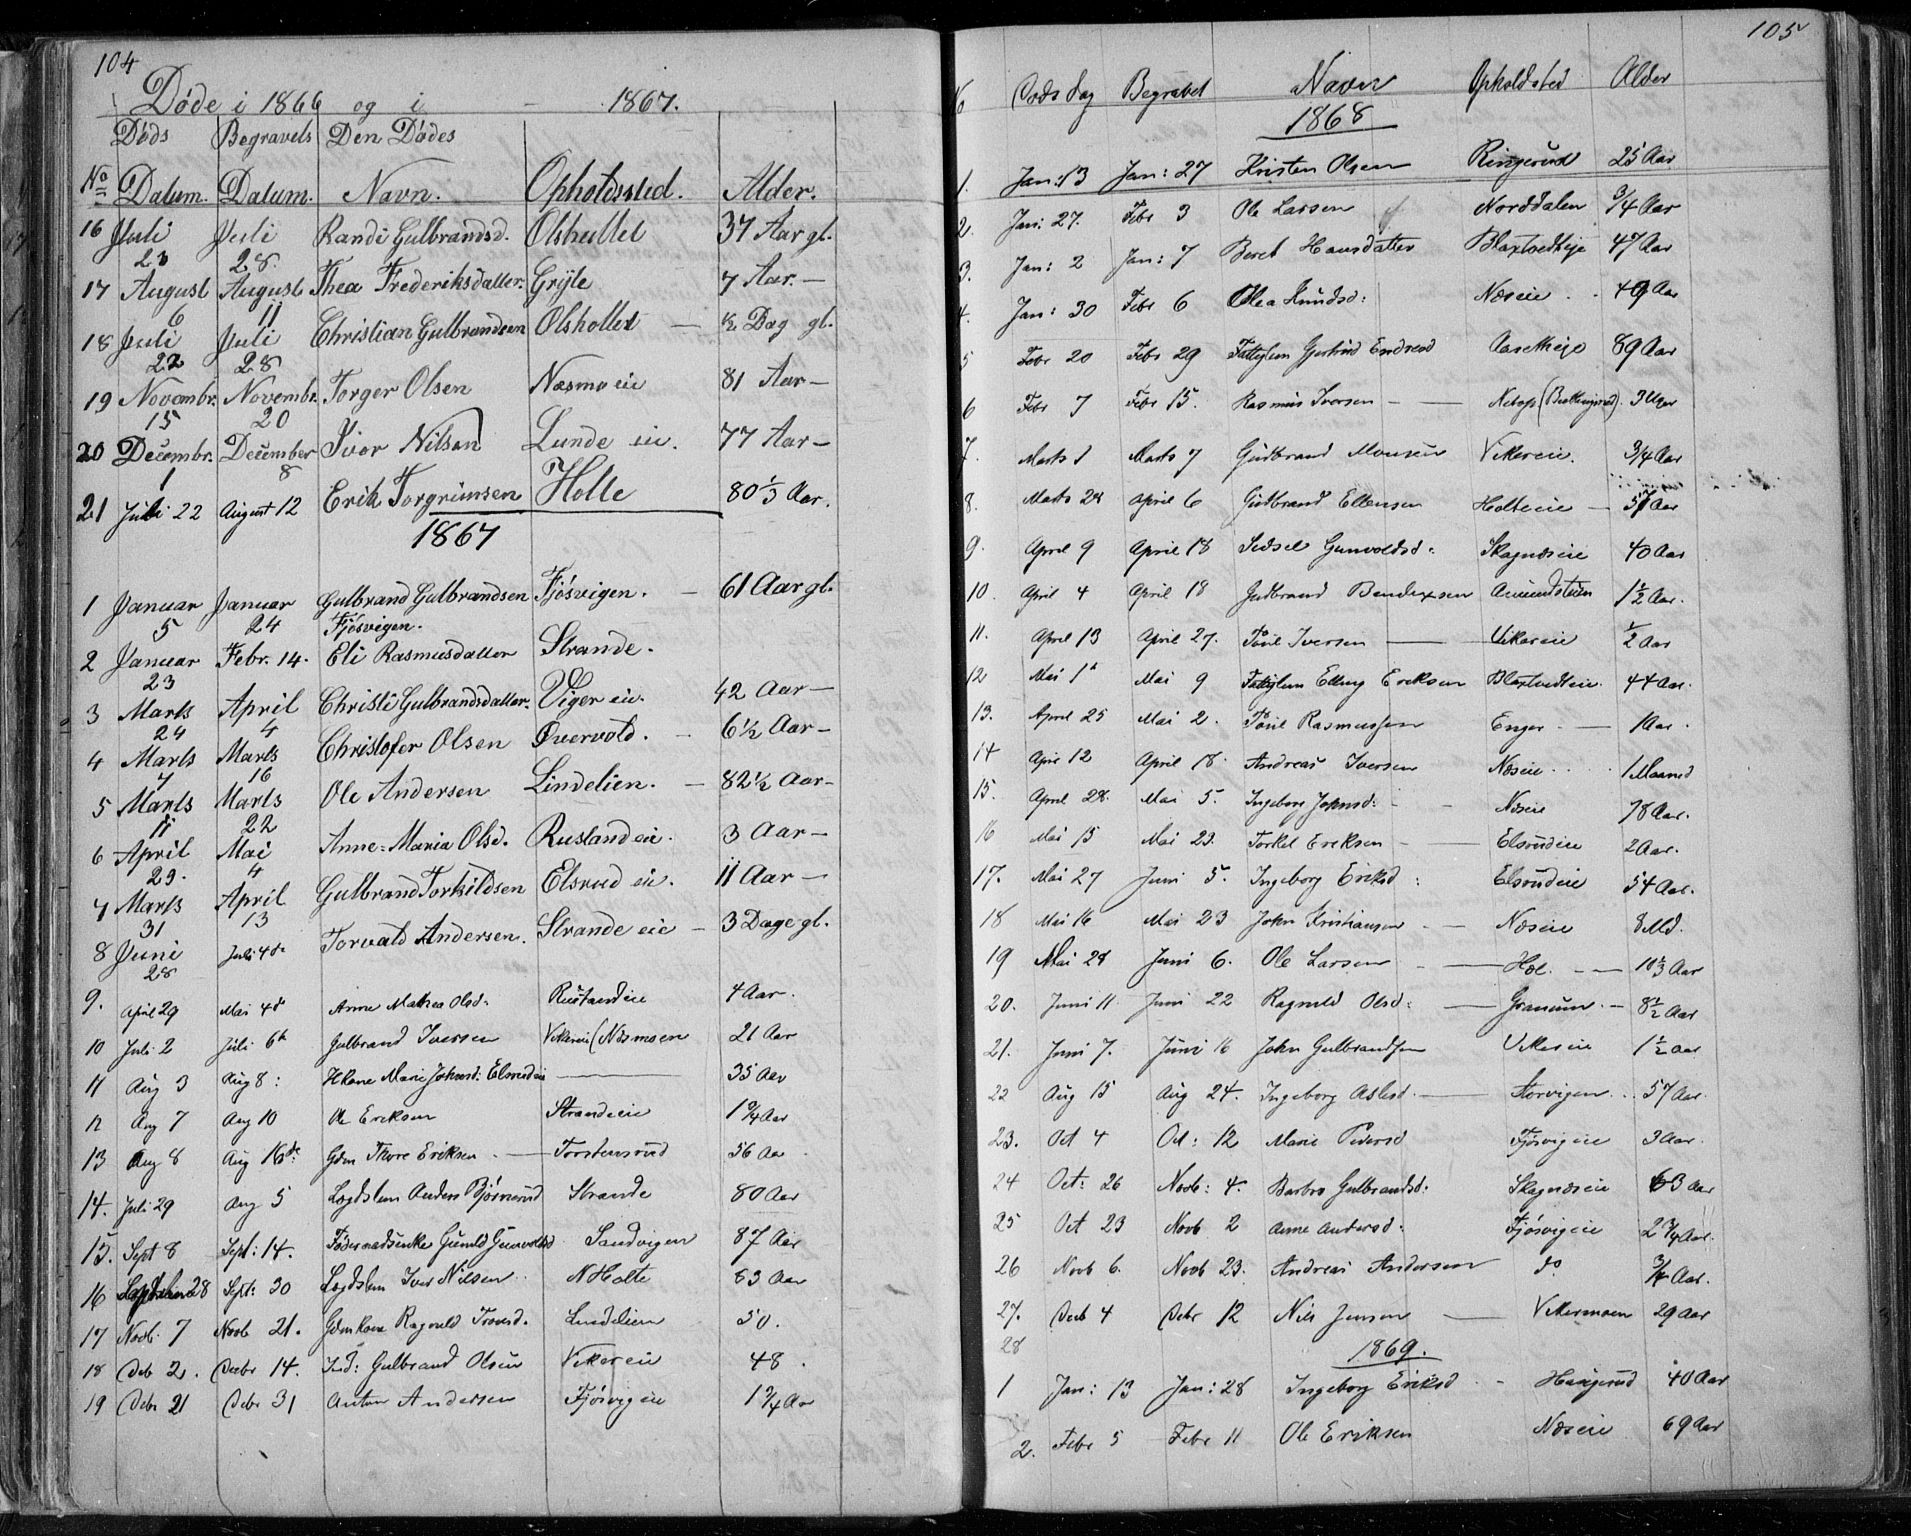 104
Døde i 1866 og i - 1867.
Døds Begravels Den Dødes
No Datum. Datum. Navn. Opholdssted. Alder.
16 Juli 23 Juli 28. Randi Gulbrandsd. Olshullet 37 Aar gl.
17 August 6 August 11 Thea Frederiksdatter. Gryte 7 Aar. —
18 Juli 22 Juli 28 Christian Gulbrandsen Olshollet — ½ Dag gl.
19 Novembr. 15 Novembr. 20 Torger Olsen Næsmoeie 81 Aar —
20 Decembr. 1 December 8 Iver Nilsen Lunde eie. 77 Aar —
21 Juli 22 August 12 Erik Torgrimsen Holte 80 ⅓ Aar.
1867
1 Januar 5 Januar 24 Gulbrand Gulbrandsen Fjøsvigen. Fjøsvigen. — 61 Aar gl.
2 Januar 23 Febr. 14. Eli Rasmusdatter Strande.
3 Marts 24 April 4 Christi Gulbrandsdatter. Viger eie. 42 Aar —
4 Marts 7 Marts 16 Christofer Olsen Overvold. — 6½ Aar —
5 Marts 11 Marts 22 Ole Andersen Lindelien. — 82½ Aar —
6 April 29. Mai 4 Anne-Maria Olsd. Rusland eie. 3 Aar —
7 Marts 31 April 13 Gulbrand Torkildsen Elsrud eie. 11 Aar —
8 Juni 28 Juli 4de Torvald Andersen. Strande eie — 3 Dage gl.
9. April 29 Mai 4de Anne Mathea Olsd. Rustandeie 4 Aar.
10 Juli 2 Juli 6te Gulbrand Iversen Vikereie (Næsmoen 21 Aar
11 Aug 3 Aug 8: Marie Johnsd: Elsrudeie — 35 Aar
12 Aug 7 Aug 10 Ole Eriksen Strandeie 1¾ Aar
13 Aug 8 Aug 16de Gdm Thore Eriksen. — Torstensrud 56 Aar
14. Juli 29 Aug 5 Lægdslem Anders Bjørnerud Strande 80 Aar
15. Sept 8 Sept: 14. Føderaadsenke Gunild Gunvoldsd Sandvigen 87 Aar
16 28 Sept: 30 Lægdslem Iver Nilsen N Holte 63 Aar
17 Novb. 7 Novb 21. Gdmkone Ragnild Lindelien 50.
18 Deb 2. Decbr 14. Ind: Gulbrand Olsen Vikereie 48.
19 Debr 21 Debr 31 Anton Andersen Fjøsvigeie 1¾ Aar
105
No Døds dag Begravet Navn Opholdsted Alder
1868
1. Jan: 13 Jan: 27 Kristen Olsen Ringerud 25 Aar
2. Jan: 27. Febr 3 Ole Larsen Norddalen ¾ Aar
3. Jan: 2 Jan: 7 Beret Hansdatter 47 Aar
4. Jan: 30 Febr 6 Olea Knudsd: Næseie. . 49 Aar
5 Febr 20 Febr 29 Fattiglem Gjertrud Endresd 89 Aar
6 Febr 7 Febr 15. Rasmus Iversen — 3 Uger
7. Marts 1 Marts 7 Gudbrand Monsen Vikereie. ¾ Aar
8. Marts 28 April 6 Gulbrand Ellensen Holteeie — 57 Aar
9. April 9 April 18 Sidsel Gunvoldsd: Skagnæseie 40 Aar
10. April 4 April 18 Gudbrand Bendixsen Amundstuen 1½ Aar.
11. April 13 April 27. Povil Iversen — Vikereie ½ Aar
12 Mai 1st Mai 9 Fattiglem Elling Eriksen 44 Aar.
13. April 25 Mai 2. Povil Rasmussen Enger. — 1 Aar.
14 April 12 April 18. Andreas Iversen Næseie. 1 Maaned
15. April 28. Mai 5. Ingeborg Johnsd: Næseie 78 Aar.
16 Mai 15 Mai 23. Torkel Eriksen — Elsrudeie 2 Aar.
17. Mai 27 Juni 5. Ingeborg Eriksd: Elsrudeie 54 Aar.
18 Mai 16 Mai 23 John Kristiansen Næseie 8 Md.
19 Mai 28 Juni 6. Ole Larsen — Hol. — 10⅓ Aar
20. Juni 11. Juni 22 Ragnild Olsd: — Granum. — 8½ Aar
21. Juni 7. Juni 16 John Gulbrandsen Vikereie 1½ Aar
22 Aug 15 Aug 24. Ingeborg Aslesd. — Storvigen. . 57 Aar.
23. Oct 4 Oct: 12 Marie Pedersd Fjøsvigeie 3 Aar.
24 Oct: 26 Novb: 4. Barbro Gulbrandsd: Skagnæseie 63 Aar
25 Oct 23 Novb 2 Anne Andersd. Fjøsvigeie 2¾ Aar.
26 Novb 6. Novb 23. Andreas Andersen do ¾ Aar.
27. Decb 4 Debr 12 Nils Jensen — Vikermoen 29 Aar
28
1869.
1 Jan: 13 Jan: 28 Ingeborg Eriksd — Haugerud 40 Aar
2. Febr 5 Febr 11 Ole Eriksen Næseie 69 Aar